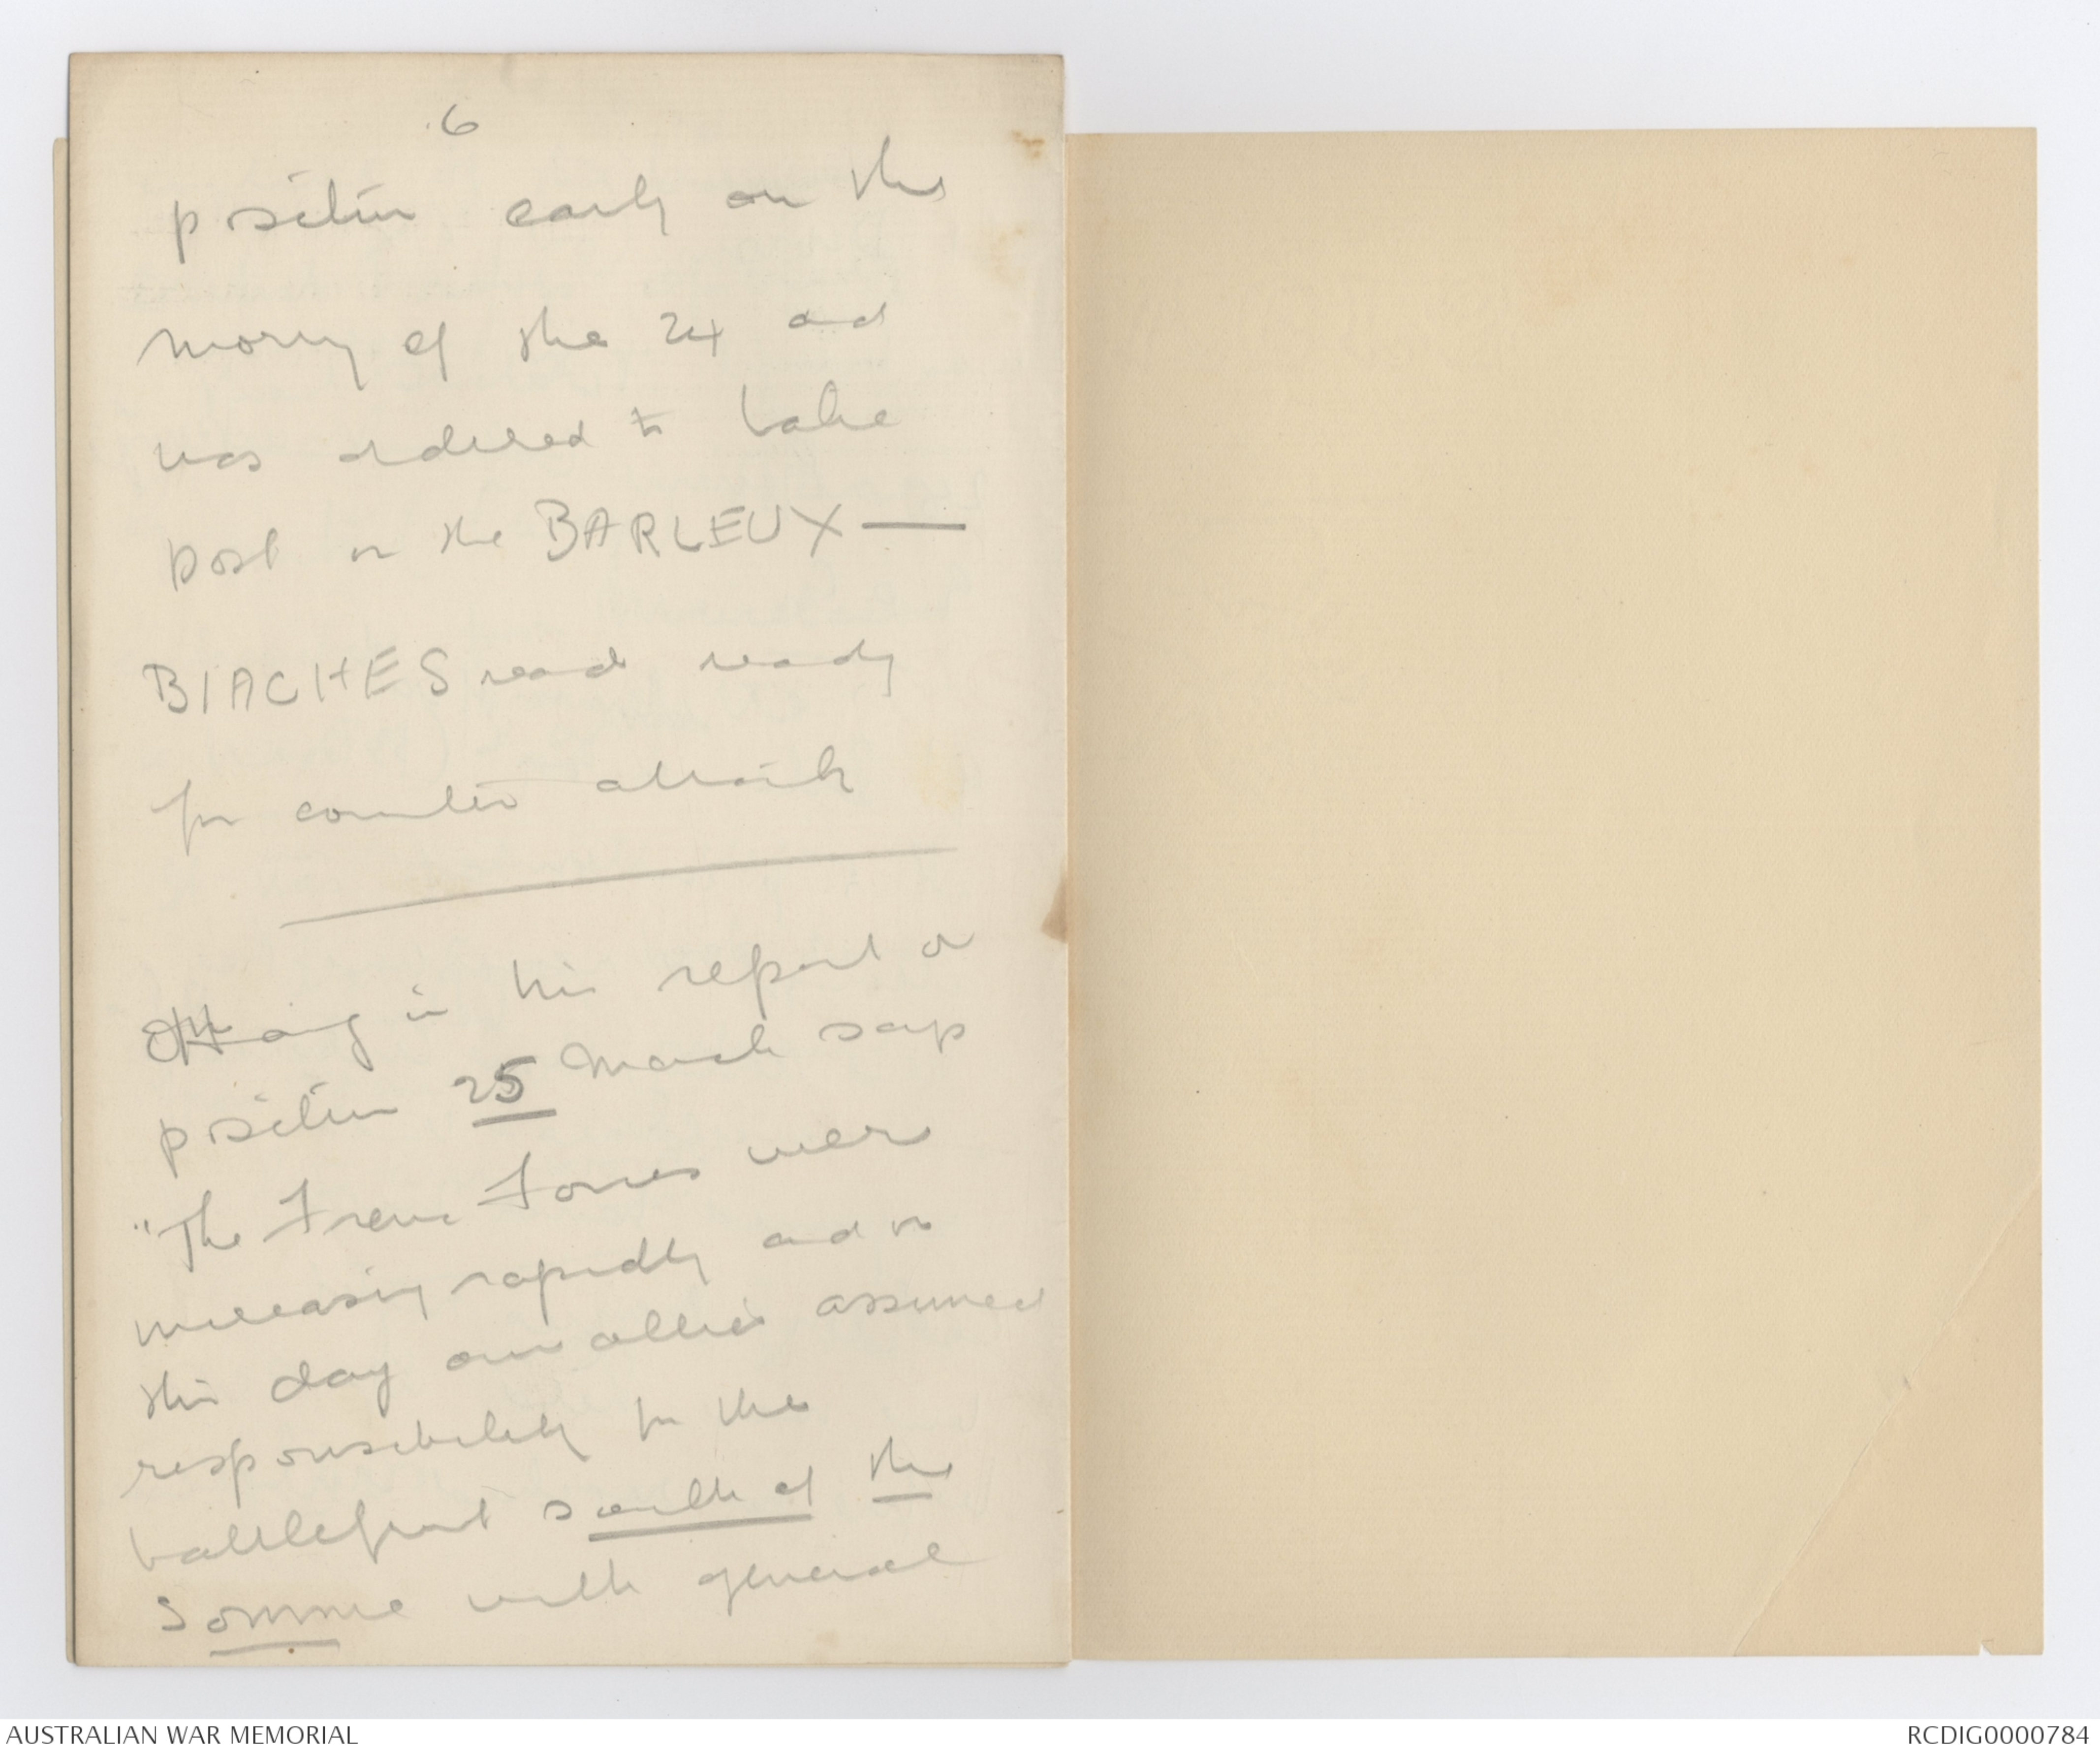 6
position early on the
morning of the 24 and
was ordered to take
post on the BARLEUX —
BIACHES road ready
for counter attack
Haig in his report on
position 25 March says
"The French Forces were
increasing rapidly and on
this day our allies assumed
responsibility for the
battlefront south of the
Somme with general
AUSTRALIAN WAR MEMORIAL
RCDIG0000784